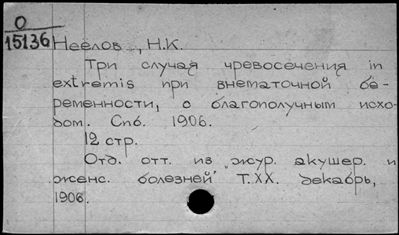 О
15136
Неелов, Н.К.
Три случая чревосечения in
extremis при внематочной бе-
ременности, с благополучным исхо-
дом. Спб. 1906.
12 стр.
Отд. отт. из "жур. акушер. и
женс. болезней" Т.XX. декабрь,
1906.